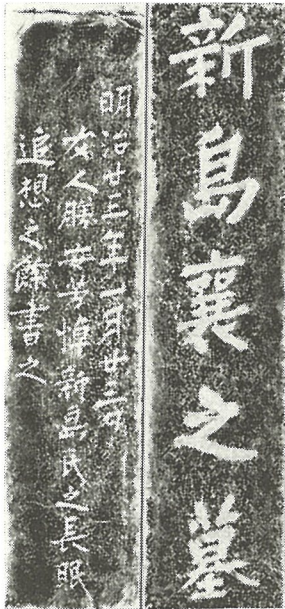 新島襄之墓
明治廿三年一月廿三夜
友人勝安芳悼新島氏之長眠
追想之餘書之